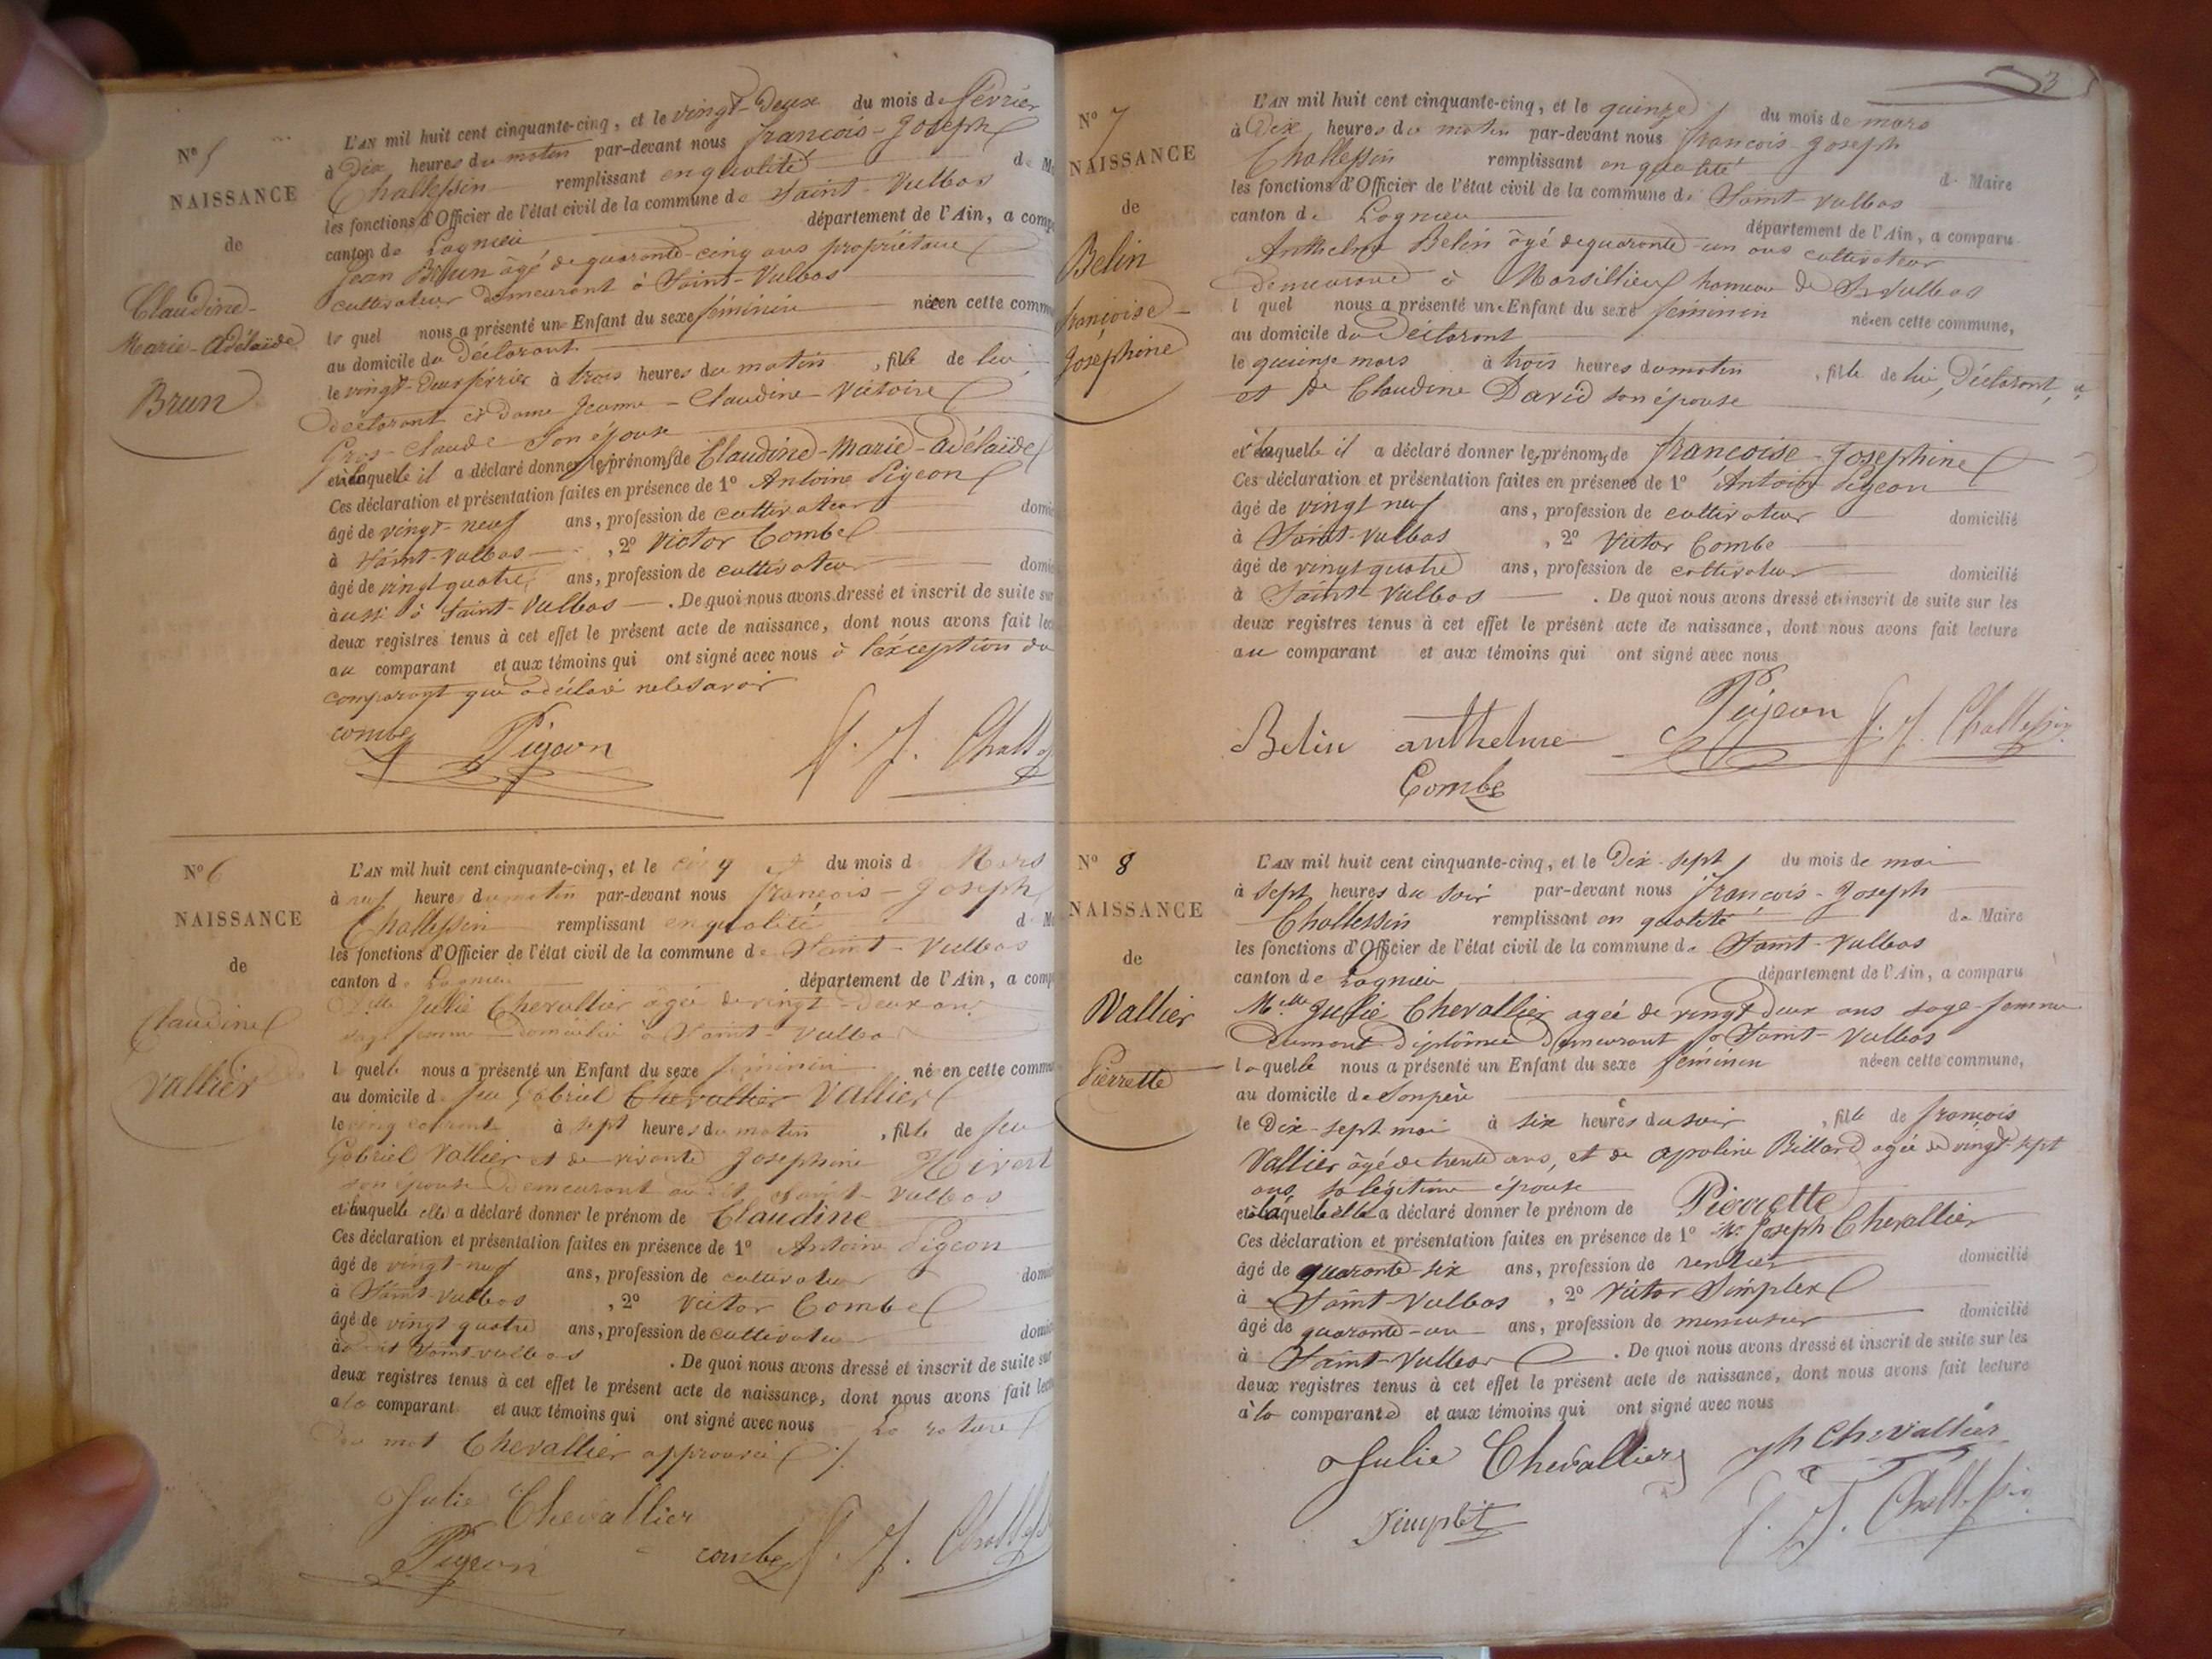 N° 5
NAISSANCE
de
Claudine-
Marie-Adélaïde
Brun
L'AN mil huit cent cinquante-cinq, et le vingt-deux du mois de février
à Dix heures du matin par-devant nous françois-Joseph
Challessin remplissant en qualité de M
les fonctions d'Officier de l'état civil de la commune de Saint-Vulbas
canton de Lagnieu département de l'Ain, a comp
Jean Brun âgé de quarante-cinq ans propriétaire
cultivateur demeurant à Saint-Vulbas
le quel nous a présenté un Enfant du sexe féminin née en cette comm
au domicile du Déclarant
le vingt-deux février à trois heures du matin, fille de lui
déclarant et dame Jeanne-Claudine-Victoire
Gros-Claude son épouse
et à laquelle il a déclaré donner les prénoms de Claudine-Marie-Adélaïde
Ces déclaration et présentation faites en présence de 1° Antoine Pigeon
âgé de vingt-neuf ans, profession de cultivateur domi
à Saint-Vulbas, 2° Victor Combe
âgé de vingt quatre ans, profession de cultivateur domi
aussi à Saint-Vulbas. De quoi nous avons dressé et inscrit de suite sur
deux registres tenus à cet effet le présent acte de naissance, dont nous avons fait lec
au comparant et aux témoins qui ont signé avec nous à l'exception du
comparant qui a déclaré ne le savoir
combe Pigeon f. J. Challes
N° 6
NAISSANCE
de
Claudine
Vallier
L'AN mil huit cent cinquante-cinq, et le cinq du mois de Mars
à neuf heures du matin par-devant nous françois-Joseph
Challessin remplissant en qualité de M
les fonctions d'Officier de l'état civil de la commune de Saint-Vulbas
canton de Lagnieu département de l'Ain, a comp
Delle Julie Chevallier âgée de vingt-deux ans
sage femme domiciliée à Saint-Vulbas
laquelle nous a présenté un Enfant du sexe féminin née en cette commu
au domicile de feu Gabriel Chevallier Vallier
le cinq courant à sept heures du matin, fille de feu
Gabriel Vallier et de vivante Josephine Hivert
son épouse demeurant audit Saint-Vulbas
et à laquelle elle a déclaré donner le prénom de Claudine
Ces déclaration et présentation faites en présence de 1° Antoine Pigeon
âgé de vingt-neuf ans, profession de cultivateur domi
à Saint-Vulbas, 2° Victor Combe
âgé de vingt quatre ans, profession de cultivateur domi
à Saint-Vulbas. De quoi nous avons dressé et inscrit de suite sur
deux registres tenus à cet effet le présent acte de naissance, dont nous avons fait lect
à la comparant et aux témoins qui ont signé avec nous La rature
du mot Chevallier approuvée
Julie Chevallier
Pigeon combe f. J. Challes
3
N° 7
NAISSANCE
de
Belin
françoise-
Joséphine
L'AN mil huit cent cinquante-cinq, et le quinze du mois de mars
à Dix heures du matin par-devant nous françois-Joseph
Challessin remplissant en qualité de Maire
les fonctions d'Officier de l'état civil de la commune de Saint-Vulbas
canton de Lagnieu département de l'Ain, a comparu
Anthelme Belin âgé de quarante-un ans cultivateur
demeurant à Marsillieux hameau de St Vulbas
l quel nous a présenté un Enfant du sexe féminin née en cette commune,
au domicile du Déclarant
le quinze mars à trois heures du matin, fille de lui, Déclarant,
et de Claudine David son épouse
et à laquelle il a déclaré donner les prénoms de françoise-Josephine
Ces déclaration et présentation faites en présence de 1° Antoine Pigeon
âgé de vingt neuf ans, profession de cultivateur domicilié
à Saint-Vulbas, 2° Victor Combe
âgé de vingt quatre ans, profession de cultivateur domicilié
à Saint-Vulbas. De quoi nous avons dressé et inscrit de suite sur les
deux registres tenus à cet effet le présent acte de naissance, dont nous avons fait lecture
au comparant et aux témoins qui ont signé avec nous
Belin anthelme Pigeon f. J. Challessin
Combe
N° 8
NAISSANCE
de
Vallier
Pierrette
L'AN mil huit cent cinquante-cinq, et le Dix-sept du mois de mai
à sept heures du soir par-devant nous françois-Joseph
Challessin remplissant en qualité de Maire
les fonctions d'Officier de l'état civil de la commune de Saint-Vulbas
canton de Lagnieu département de l'Ain, a comparu
Melle Julie Chevallier agée de vingt deux ans sage-femme
diplômée demeurant à Saint-Vulbas
laquelle nous a présenté un Enfant du sexe féminin née en cette commune,
au domicile de Son père
le Dix-sept mai à six heures du soir, fille de françois
Vallier âgé de trente ans, et de apoline Billard agée de vingt-sept
ans, sa légitime épouse
et à laquelle elle a déclaré donner le prénom de Pierrette
Ces déclaration et présentation faites en présence de 1° Mr Joseph Chevallier
âgé de quarante-six ans, profession de rentier domicilié
à Saint-Vulbas, 2° Victor Simplex
âgé de quarante-un ans, profession de menuisier domicilié
à Saint-Vulbas. De quoi nous avons dressé et inscrit de suite sur les
deux registres tenus à cet effet le présent acte de naissance, dont nous avons fait lecture
à la comparante et aux témoins qui ont signé avec nous
Julie Chevallier Jh Chevallier
Simplet f. J. Challessin